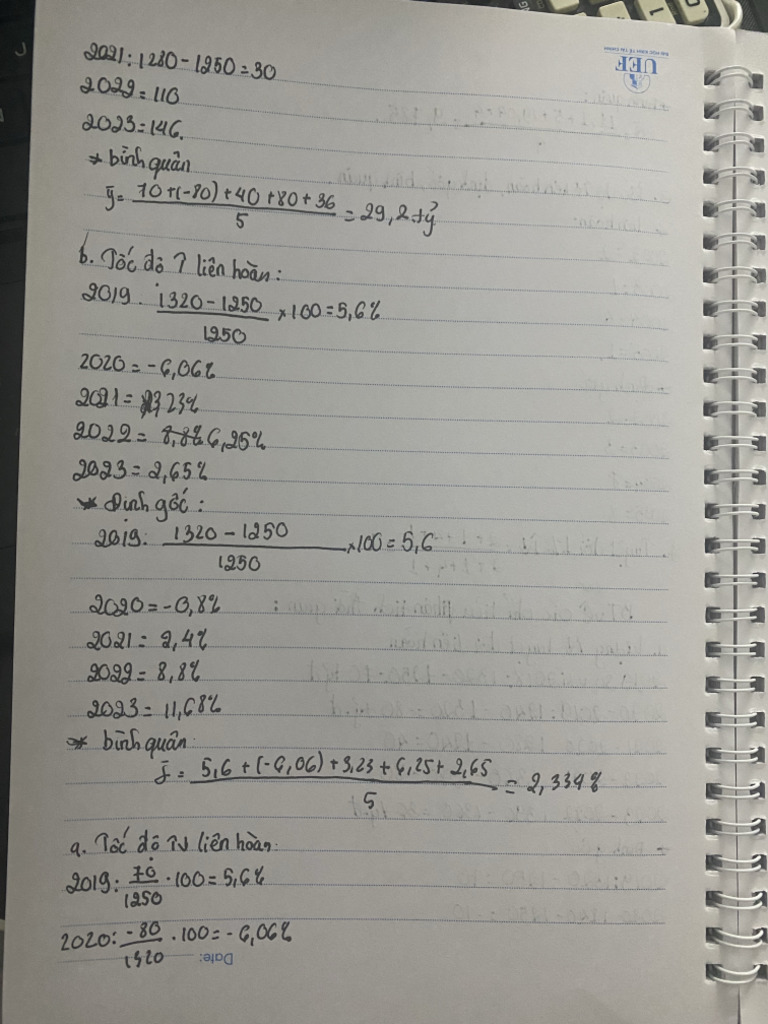 ĐẠI HỌC KINH TẾ TÀI CHÍNH
UEF
2021: 1280 - 1250 = 30
2022 = 110
2023 = 146.
* bình quân
ȳ = 70 + (-80) + 40 + 80 + 36 / 5 = 29,2 tỷ
b. Tốc độ ↑ liên hoàn:
2019: 1320 - 1250 / 1250 × 100 = 5,6%
2020 = -6,06%
2021 = 3,23%
2022 = 6,25%
2023 = 2,65%
* Định gốc:
2019: 1320 - 1250 / 1250 × 100 = 5,6
2020 = -0,8%
2021 = 2,4%
2022 = 8,8%
2023 = 11,68%
* bình quân:
= 5,6 + (-6,06) + 3,23 + 6,25 + 2,65 / 5 = 2,334%
a. Tốc độ ↑↓ liên hoàn:
2019: 70 / 1250 . 100 = 5,6%
2020: -80 / 1320 . 100 = -6,06%
Date: